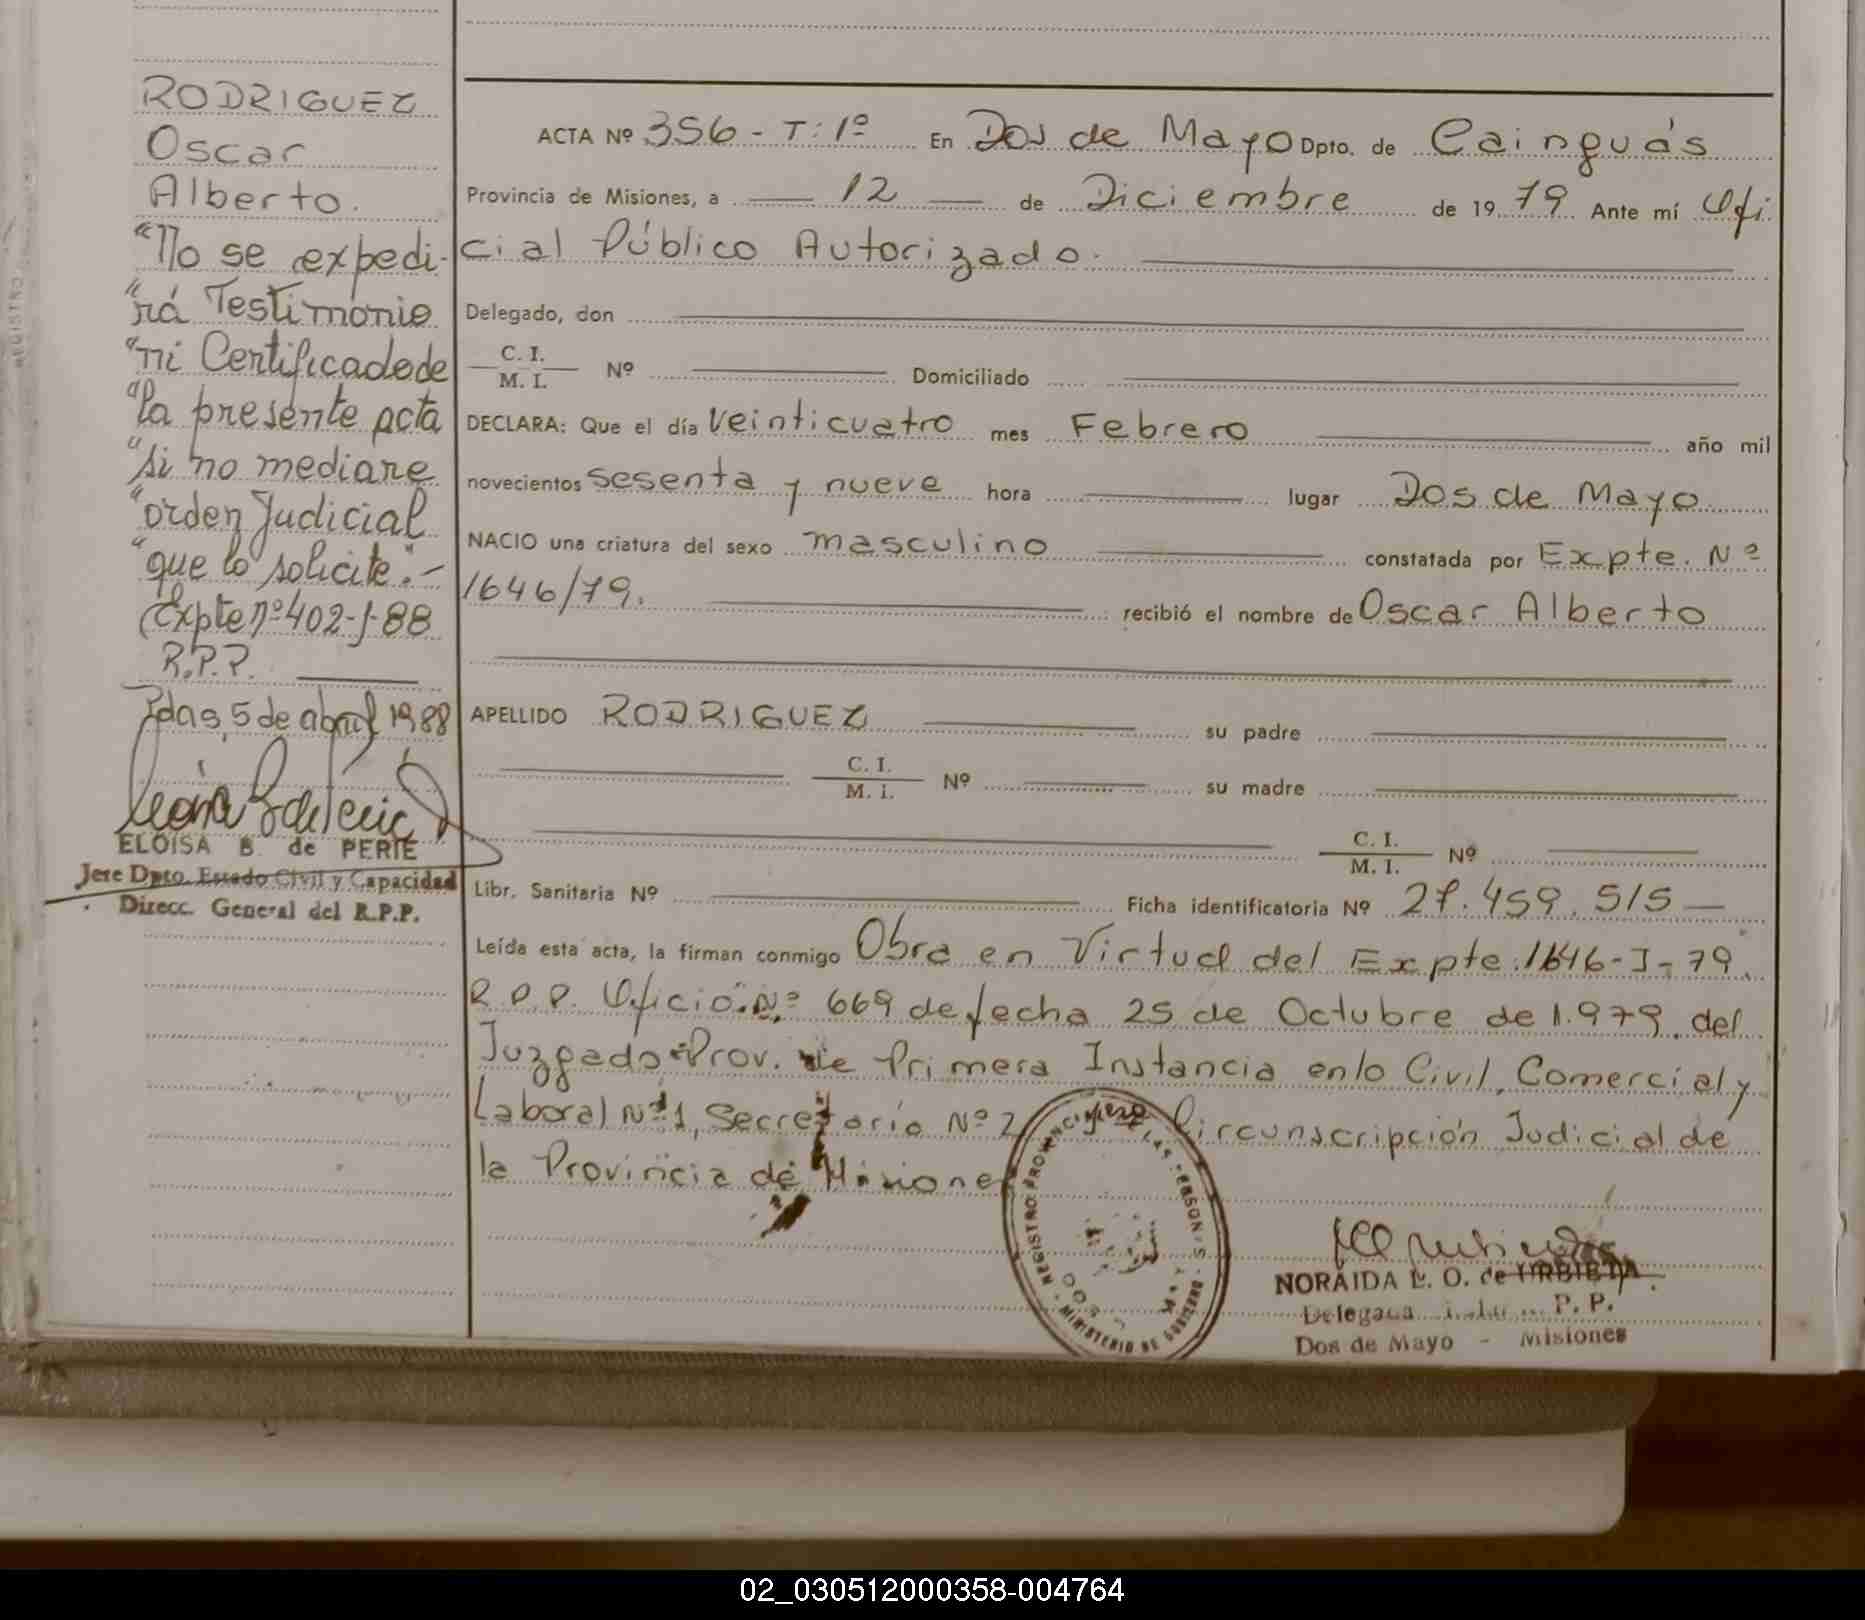 RODRIGUEZ
Oscar
Alberto.
"No se expedi-
"rá Testimonio
"ni Certificado de
"la presente acta
"si no mediare
"orden Judicial
"que lo solicite".-
(Expte nº 402-J-88
R.P.P.
Pdas, 5 de abril 1988
ELOISA B. de PERIE
Jefe Dpto. Estado Civil y Capacidad
Direcc. General del R.P.P.
ACTA Nº 356 - T: 1º En Dos de Mayo Dpto. de Cainguás
Provincia de Misiones, a 12 de Diciembre de 19 79 Ante mí Ofi
cial Público Autorizado.
Delegado, don
C. I.
M. I. Nº Domiciliado
DECLARA: Que el día veinticuatro mes Febrero año mil
novecientos sesenta y nueve hora lugar Dos de Mayo
NACIO una criatura del sexo masculino constatada por Expte. Nº
1646/79. recibió el nombre de Oscar Alberto
APELLIDO RODRIGUEZ su padre
C. I.
M. I. Nº su madre
C. I.
M. I. Nº
Libr. Sanitaria Nº Ficha identificatoria Nº 27.459.515
Leída esta acta, la firman conmigo Obra en Virtud del Expte. 1646-J-79.
R.P.P. Oficio Nº 669 de fecha 25 de Octubre de 1.979. del
Juzgado Prov. de Primera Instancia en lo Civil, Comercial y
Laboral Nº 1, Secretaría Nº 2 Circunscripción Judicial de
la Provincia de Misiones
REGISTRO PROVINCIAL DE LAS PERSONAS - MINISTERIO DE GOBIERNO -
DOS MAYO
NORAIDA L. O. de URBIETA
Delegada P. P.
Dos de Mayo - Misiones
02_030512000358-004764